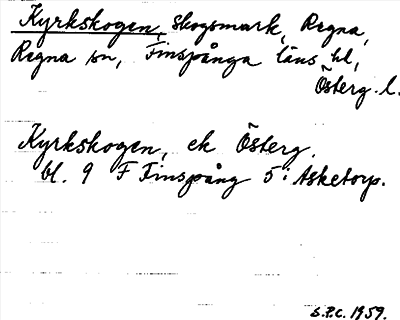 Kyrkskogen, skogsmark, Regna,
Regna sn, Finspånga läns hd,
Österg. l.
Kyrkskogen, ek Österg.
bl. 9 F Finspång 5: Asketorp.
S.P.C. 1959.